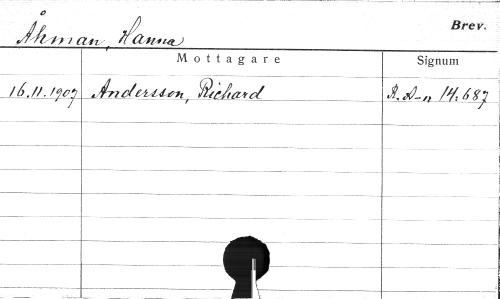 Brev.
Åhman, Hanna
Mottagare Signum
16.11.1907 Andersson, Richard R. A-n 14:687